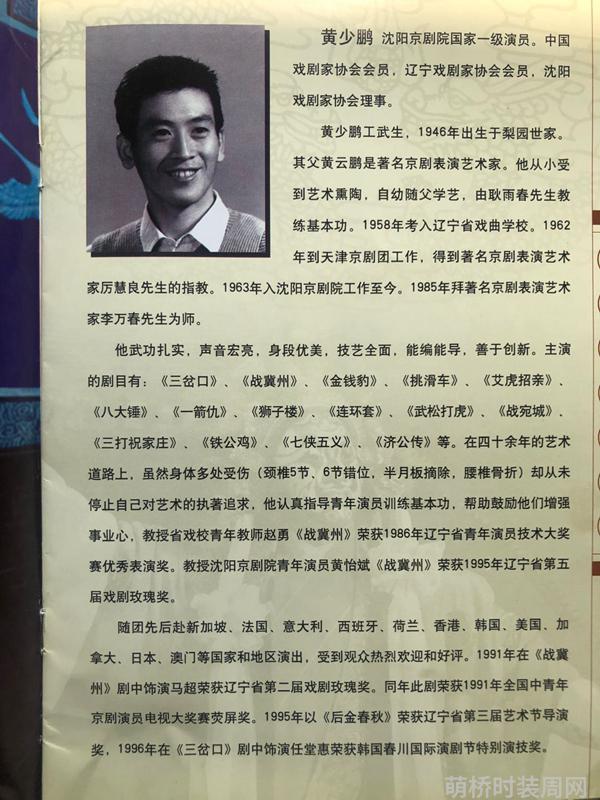 黄少鹏 沈阳京剧院国家一级演员。中国
戏剧家协会会员，辽宁戏剧家协会会员，沈阳
戏剧家协会理事。
黄少鹏工武生，1946年出生于梨园世家。
其父黄云鹏是著名京剧表演艺术家。他从小受
到艺术熏陶，自幼随父学艺，由耿雨春先生教
练基本功。1958年考入辽宁省戏曲学校。1962
年到天津京剧团工作，得到著名京剧表演艺术
家厉慧良先生的指教。1963年入沈阳京剧院工作至今。1985年拜著名京剧表演艺术
家李万春先生为师。
他武功扎实，声音宏亮，身段优美，技艺全面，能编能导，善于创新。主演
的剧目有：《三岔口》、《战冀州》、《金钱豹》、《挑滑车》、《艾虎招亲》、
《八大锤》、《一箭仇》、《狮子楼》、《连环套》、《武松打虎》、《战宛城》、
《三打祝家庄》、《铁公鸡》、《七侠五义》、《济公传》等。在四十余年的艺术
道路上，虽然身体多处受伤（颈椎5节、6节错位，半月板摘除，腰椎骨折）却从未
停止自己对艺术的执著追求，他认真指导青年演员训练基本功，帮助鼓励他们增强
事业心，教授省戏校青年教师赵勇《战冀州》荣获1986年辽宁省青年演员技术大奖
赛优秀表演奖。教授沈阳京剧院青年演员黄怡斌《战冀州》荣获1995年辽宁省第五
届戏剧玫瑰奖。
随团先后赴新加坡、法国、意大利、西班牙、荷兰、香港、韩国、美国、加
拿大、日本、澳门等国家和地区演出，受到观众热烈欢迎和好评。1991年在《战冀
州》剧中饰演马超荣获辽宁省第二届戏剧玫瑰奖。同年此剧荣获1991年全国中青年
京剧演员电视大奖赛荧屏奖。1995年以《后金春秋》荣获辽宁省第三届艺术节导演
奖，1996年在《三岔口》剧中饰演任堂惠荣获韩国春川国际演剧节特别演技奖。
萌桥时装周网